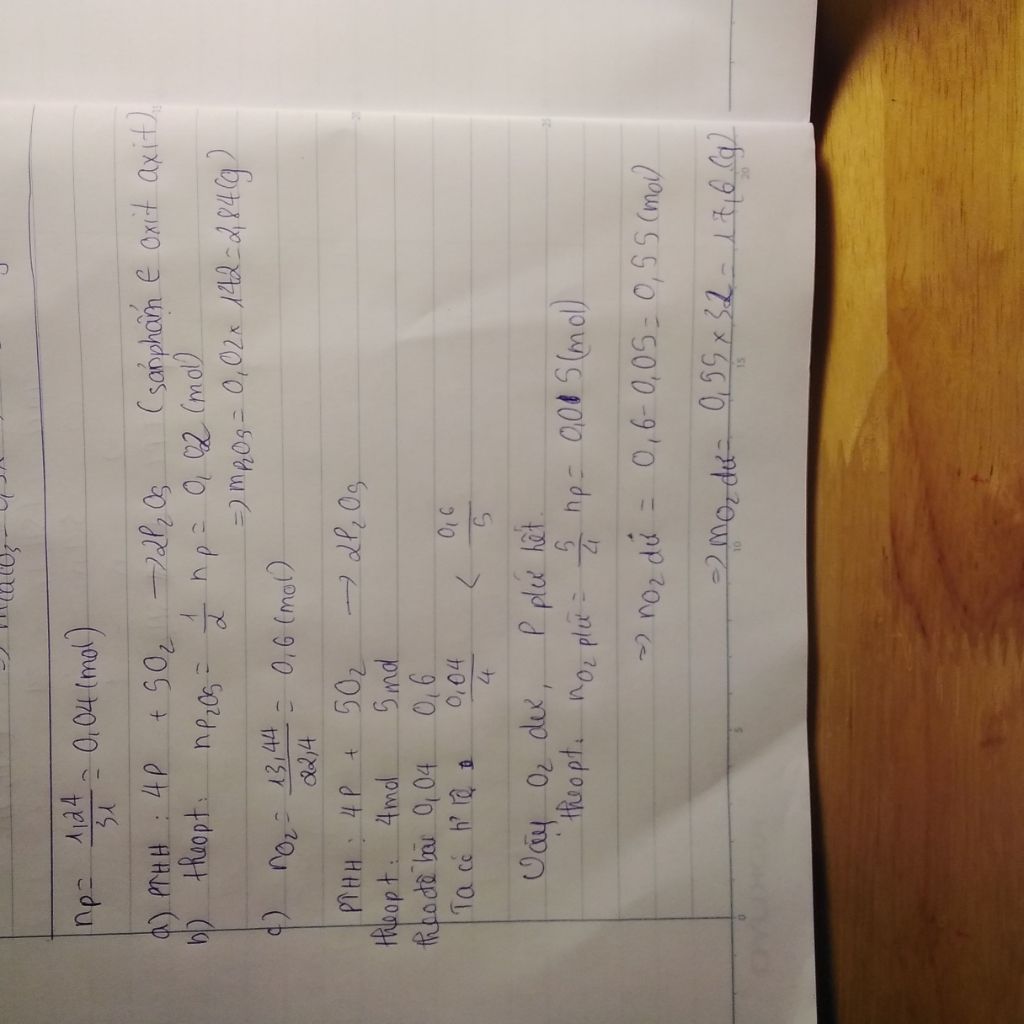 nP = 1,24/31 = 0,04 (mol)
a) PTHH : 4P + 5O2 → 2P2O5 (sản phẩm ∈ oxit axit)
b) theo pt: nP2O5 = 1/2 nP = 0,02 (mol)
⇒ mP2O5 = 0,02 x 142 = 2,84 (g)
c) nO2 = 13,44/22,4 = 0,6 (mol)
PTHH : 4P + 5O2 → 2P2O5
theo pt: 4mol 5mol
theo đề bài 0,04 0,6
Ta có tỉ lệ 0,04/4 < 0,6/5
Vậy O2 dư, P pứ hết.
theo pt: nO2 pứ = 5/4 nP = 0,05 (mol)
⇒ nO2 dư = 0,6 - 0,05 = 0,55 (mol)
⇒ mO2 dư = 0,55 x 32 = 17,6 (g)